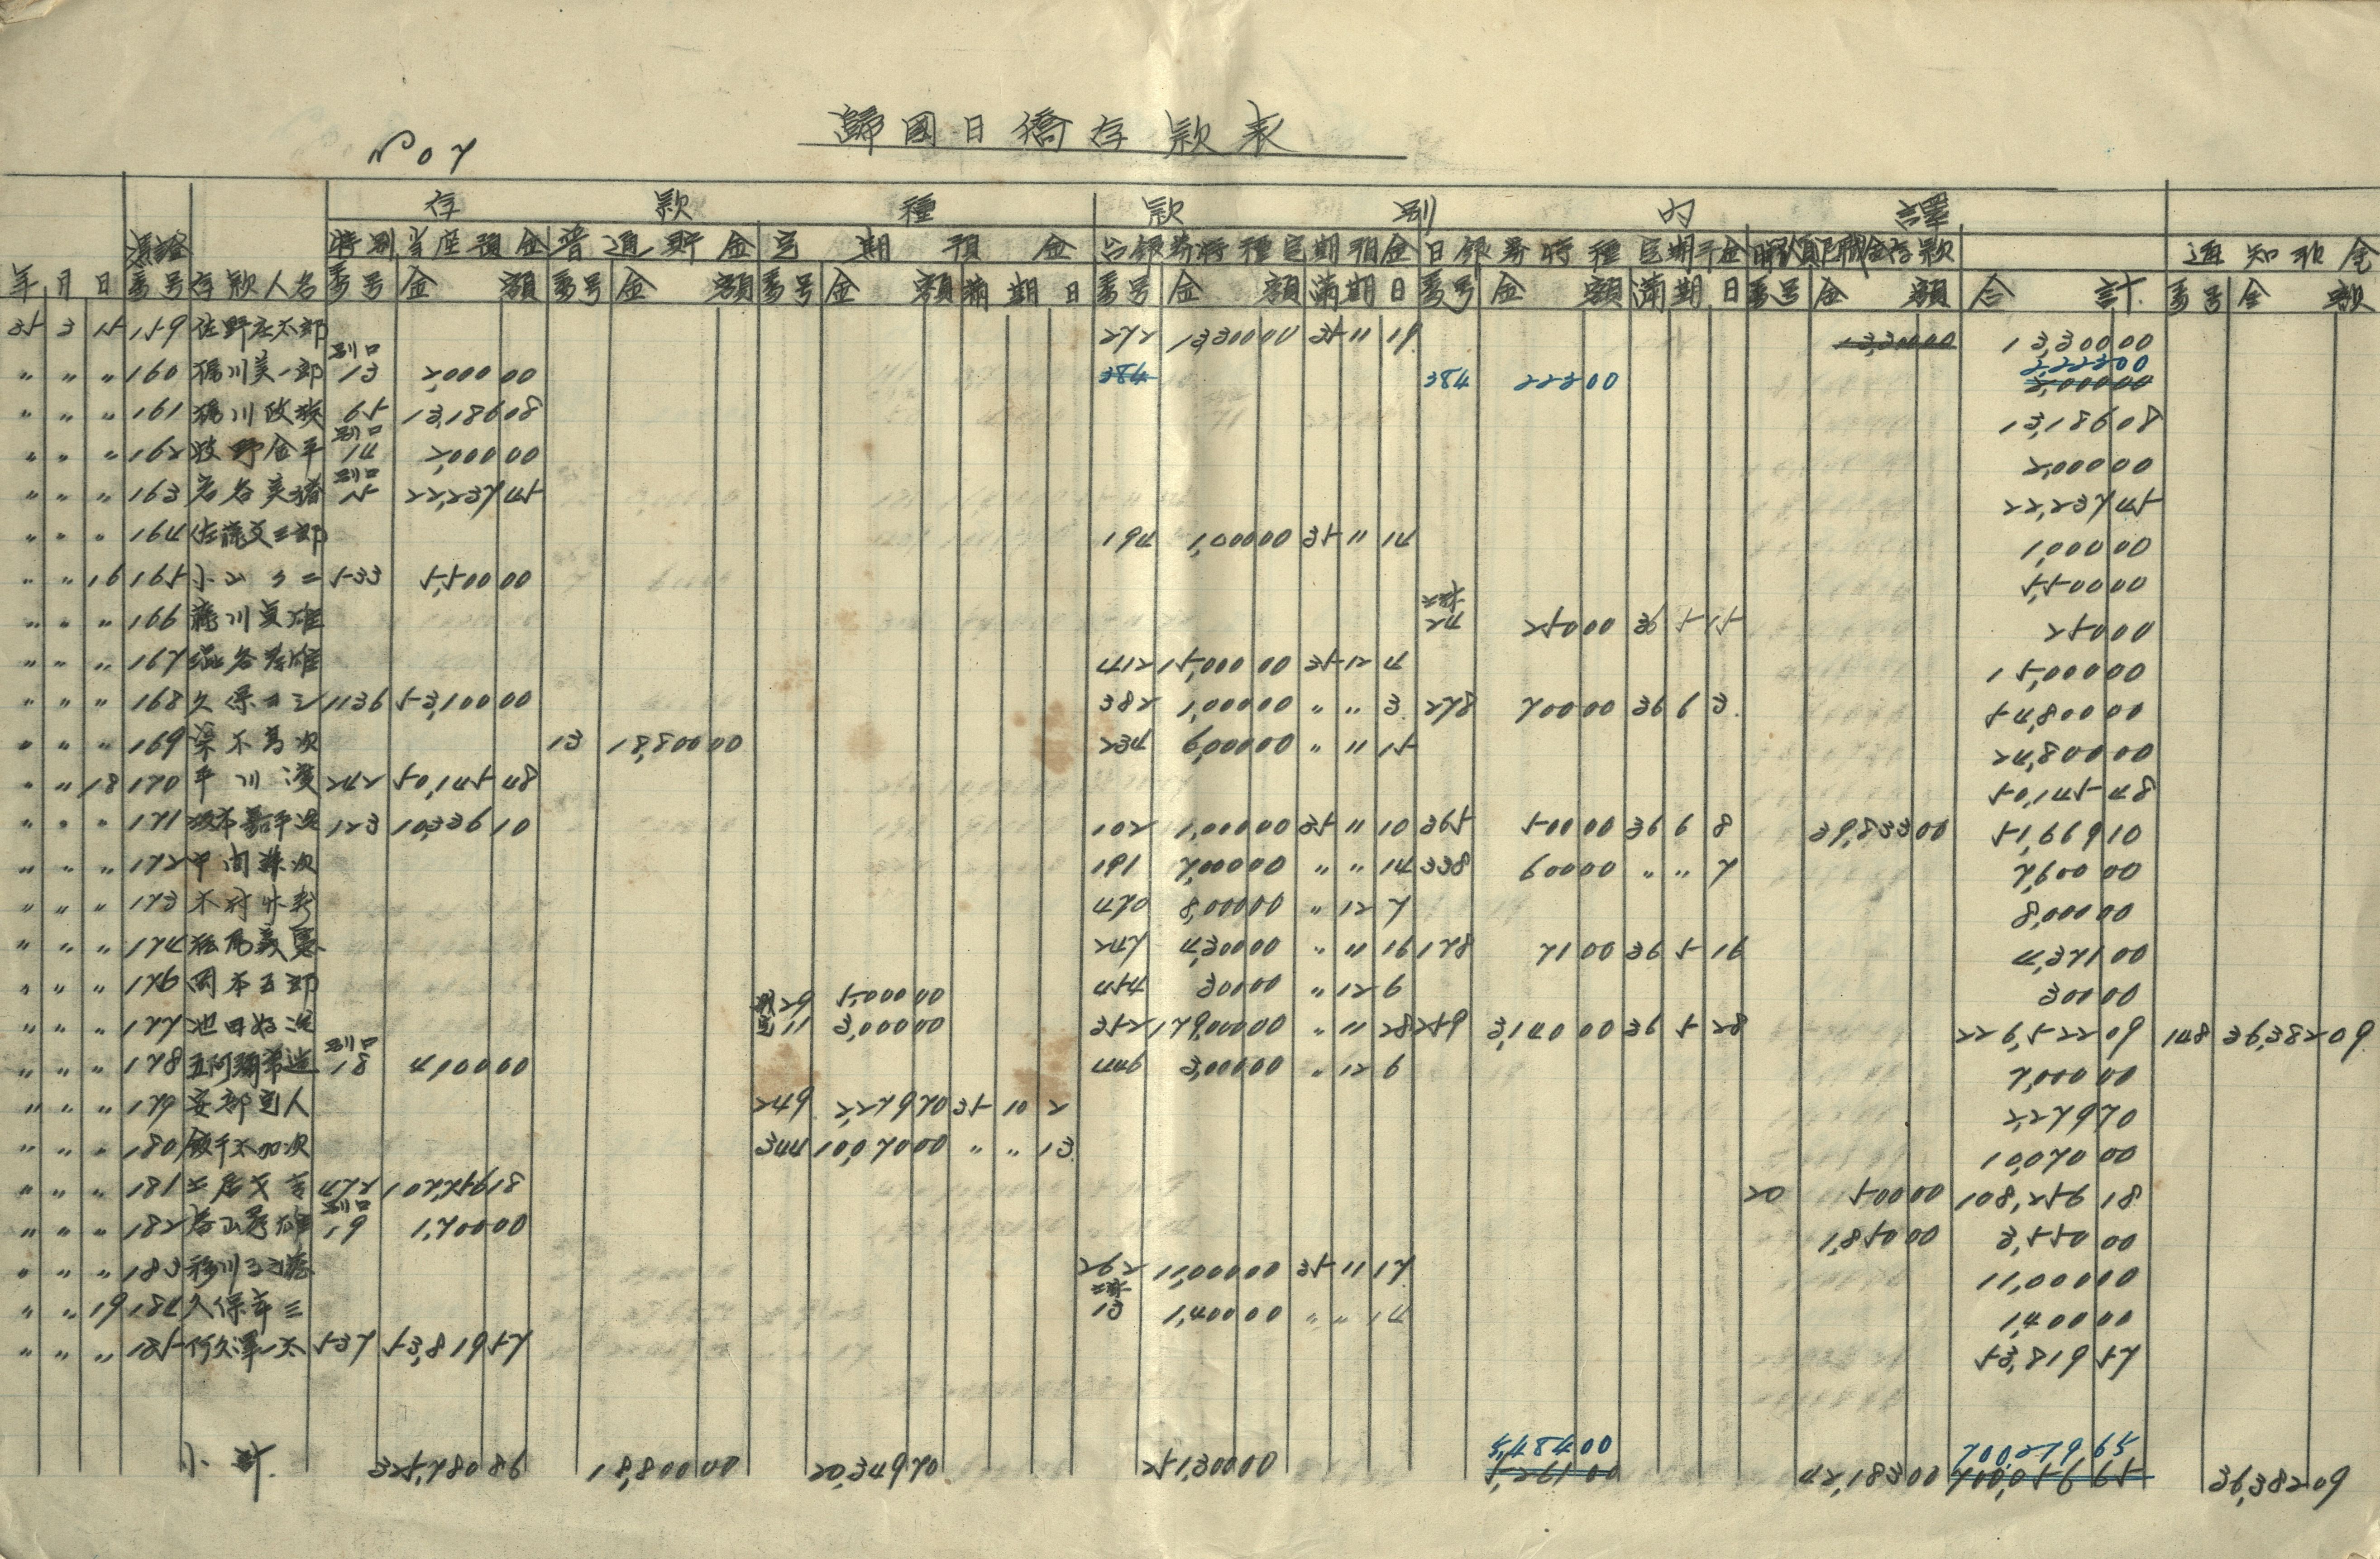 歸國日僑存款表
No 7
存 款 種 款 別 內 譯
憑證 特別当座預金 普通貯金 定期預金 台銀寄特種定期預金 日銀寄特種定期予金 存款 通知預金
年 月 日 番号 存款人名 番号 金額 番号 金額 番号 金額 満期日 番号 金額 満期日 番号 金額 満期日 番号 金額 合計 番号 金額
35 3 15 159 佐野庄太郎 272 13,300 00 35 11 19 13,300 00 13,300 00
〃 〃 〃 160 川美一郎 別口 13 2,000 00 384 384 223 00 2,223 00 2,000 00
〃 〃 〃 161 川政 65 13,186 08 13,186 08
〃 〃 〃 162 野金平 別口 14 2,000 00 2,000 00
〃 〃 〃 163 岩谷 別口 15 22,237 45 22,237 45
〃 〃 〃 164 佐藤文三郎 194 1,000 00 35 11 14 1,000 00
〃 〃 16 165 小山 533 5,500 00 5,500 00
〃 〃 〃 166 川貞雄 24 250 00 36 5 15 250 00
〃 〃 〃 167 谷 雄 412 15,000 00 35 12 4 15,000 00
〃 〃 〃 168 久保 1136 53,100 00 382 1,000 00 〃 〃 3 278 700 00 36 6 3 54,800 00
〃 〃 〃 169 次 13 18,800 00 234 6,000 00 〃 11 15 24,800 00
〃 〃 18 170 平川 242 50,145 48 50,145 48
〃 〃 〃 171 坂本 123 10,336 10 102 1,000 00 35 11 10 365 500 00 36 6 8 39,833 00 51,669 10
〃 〃 〃 172 中間 次 191 7,000 00 〃 〃 14 338 600 00 〃 〃 7 7,600 00
〃 〃 〃 173 木村 470 8,000 00 〃 12 7 8,000 00
〃 〃 〃 174 松尾義 247 4,300 00 〃 11 16 178 71 00 36 5 16 4,371 00
〃 〃 〃 176 岡本五郎 454 300 00 〃 12 6 300 00
〃 〃 〃 177 池田 29 5,000 00 定 11 3,000 00 352 179,000 00 〃 11 28 259 3,140 00 36 5 28 226,522 09 148 36,382 09
〃 〃 〃 178 五阿彌 別口 18 4,100 00 446 3,000 00 〃 12 6 7,000 00
〃 〃 〃 179 安部 人 249 2,279 70 35 10 2 2,279 70
〃 〃 〃 180 次 344 10,070 00 〃 〃 13 10,070 00
〃 〃 〃 181 土居 472 107,756 18 20 500 00 108,256 18
〃 〃 〃 182 山 雄 別口 19 1,700 00 1,850 00 3,550 00
〃 〃 〃 183 川 262 11,000 00 35 11 17 11,000 00
〃 〃 19 184 久保幸三 13 1,400 00 〃 〃 14 1,400 00
〃 〃 〃 185 久澤一太 537 53,819 57 53,819 57
小計 325,780 86 18,800 00 20,349 70 251,300 00 5,484 00 5,261 00 42,183 00 700,279 65 700,056 65 36,382 09